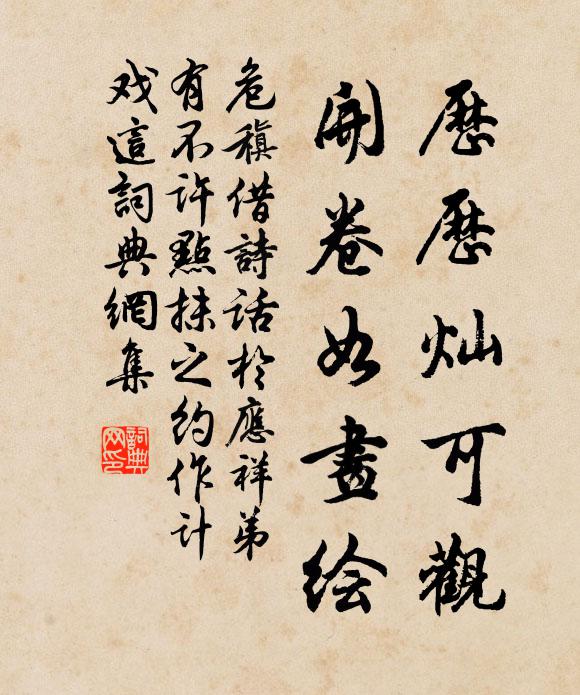 歷歷灿可觀
開卷如畫绘
危稹借詩话於應祥弟
有不许點抹之约作计
戏這詞典網集
詞典
网印